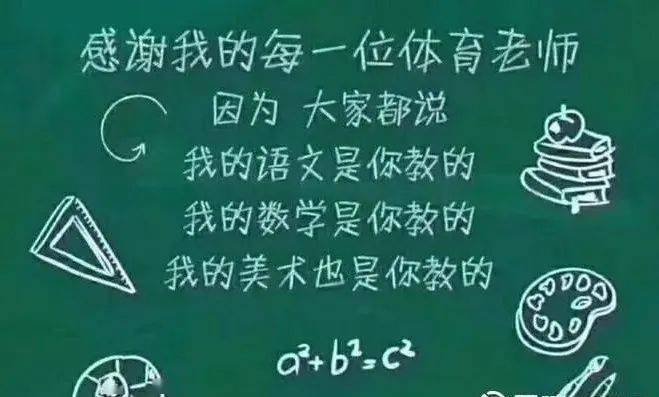 感谢我的每一位体育老师
因为 大家都说
我的语文是你教的
我的数学是你教的
我的美术也是你教的
a²+b²=c²